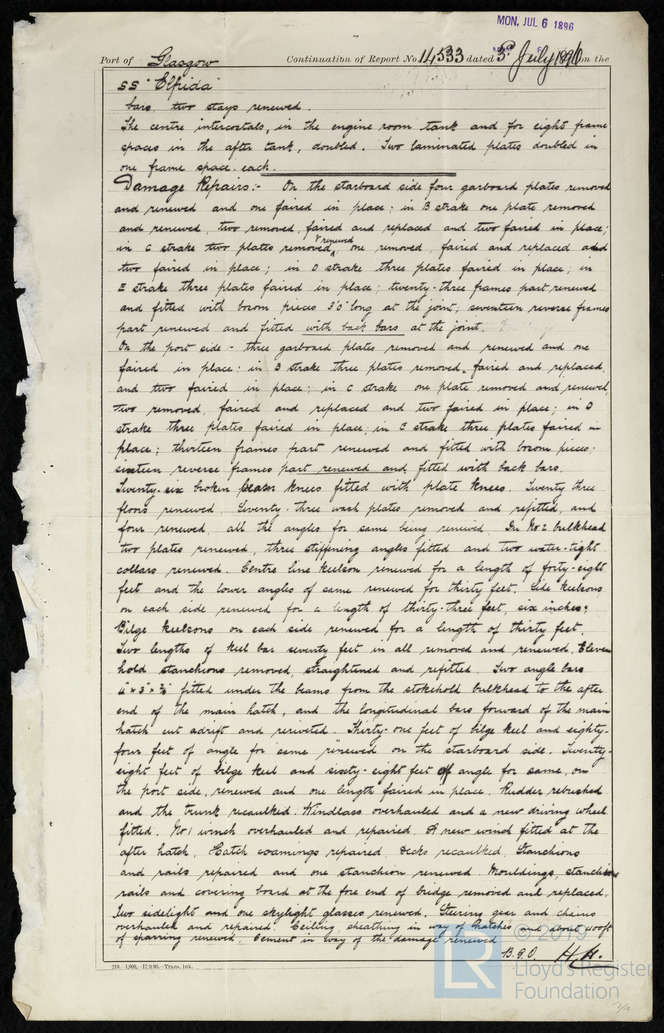 MON. JUL 6 1896
Port of Glasgow Continuation of Report No 14533 dated 3rd July 1896 on the
SS "Elfrida"
bars, two stays renewed.
The centre intercostals, in the engine room tank and for eight frame
spaces in the after tank, doubled. Two laminated plates doubled in
one frame space each.
Damage Repairs:- On the starboard side four garboard plates removed
and renewed and one faired in place; in B strake one plate removed
and renewed, two removed, faired and replaced and two faired in place;
in C strake two plates removed & renewed, one removed, faired and replaced and
two faired in place; in D strake three plates faired in place; in
E strake three plates faired in place; twenty-three frames part renewed
and fitted with bosom pieces 3'0" long at the joint; seventeen reverse frames
part renewed and fitted with back bars at the joint.
On the port side - three garboard plates removed and renewed and one
faired in place; in B strake three plates removed, faired and replaced,
and two faired in place; in C strake one plate removed and renewed,
two removed, faired and replaced and two faired in place; in D
strake three plates faired in place; in E strake three plates faired in
place; thirteen frames part renewed and fitted with bosom pieces;
sixteen reverse frames part renewed and fitted with back bars.
Twenty-six broken beam knees fitted with plate knees. Twenty three
floors renewed. Seventy-three wash plates removed and refitted, and
four renewed, all the angles for same being renewed. In No 2 bulkhead
two plates renewed, three stiffening angles fitted and two water-tight
collars renewed. Centre line keelson renewed for a length of forty-eight
feet and the lower angles of same renewed for thirty feet. Side keelsons
on each side renewed for a length of thirty-three feet, six inches;
Bilge keelsons on each side renewed for a length of thirty feet.
Two lengths of keel bar seventy feet in all removed and renewed. Eleven
hold stanchions removed, straightened and refitted. Two angle bars
fitted under the beams from the stokehold bulkhead to the after
end of the main hatch, and the longitudinal bars forward of the main
hatch cut adrift and reriveted. Thirty-one feet of bilge keel and eighty-
four feet of angle for same renewed on the starboard side. Twenty-
eight feet of bilge keel and sixty-eight feet of angle for same, on
the port side, renewed and one length faired in place. Rudder rebushed
and the trunk recaulked. Windlass overhauled and a new driving wheel
fitted. No 1 winch overhauled and repaired. A new winch fitted at the
after hatch. Hatch coamings repaired. Decks recaulked. Stanchions
and rails repaired and one stanchion renewed. Mouldings, stanchions
rails and covering board at the fore end of bridge removed and replaced.
Two sidelight and one skylight glasses renewed. Steering gear and chains
overhauled and repaired. Ceiling, sheathing in way of hatches and about 400 ft
of sparring renewed. Cement in way of the damage renewed
B.G.O. H.H.
© 2019
LR Lloyd's Register
Foundation